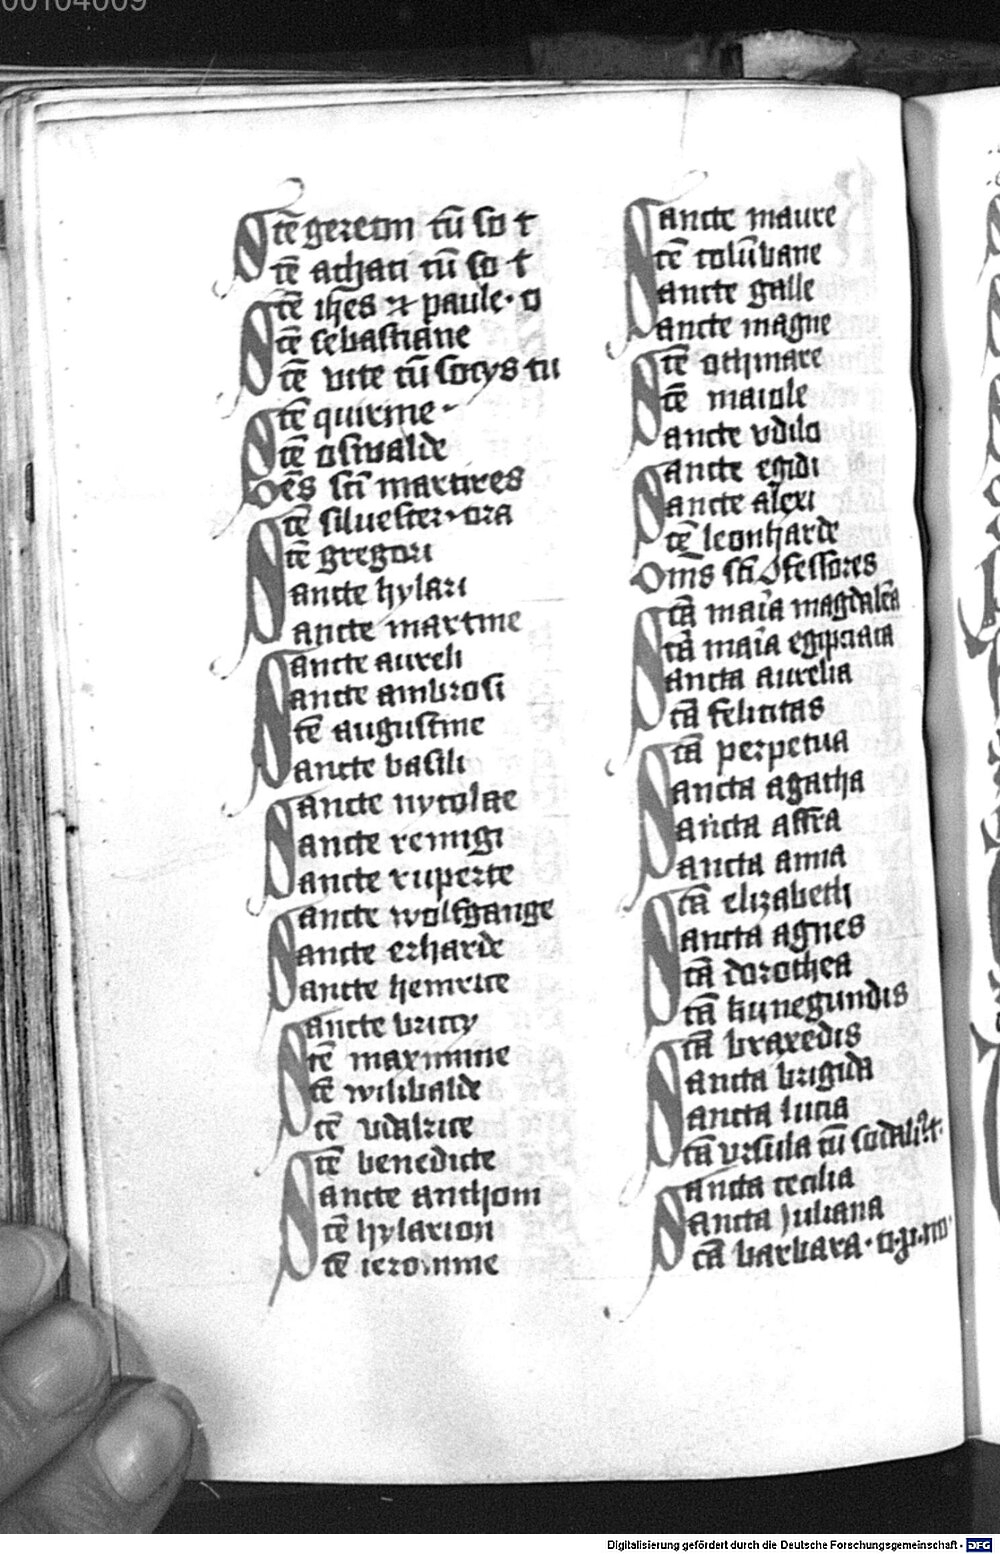 00104009
Stē gereon cū so t
Stē achaci cū so t
Stē ioħes ⁊ paule · o
Stē sebastiane
Stē vite cū socys tu
Stē quirine
Stē oswalde
Oēs scī martires
Stē siluester ora
Stē gregori
Sancte hylari
Sancte martine
Sancte aureli
Sancte ambrosi
Stē augustine
Sancte basili
Sancte nycolae
Sancte remigi
Sancte ruperte
Sancte wolfgange
Sancte erharde
Sancte heinrice
Sancte briccy
Stē maximine
Stē wilibalde
Stē vdalrice
Stē benedicte
Sancte anthoni
Stē hylarion
Stē ieronime
Sancte maure
Stē colūbane
Sancte galle
Sancte magne
Stē othmare
Stē maiole
Sancte vdilo
Sancte egidi
Sancte alexi
Stē leonharde
Om̄s scī ꝯfessores
Stā maīa magdalēa
Stā maīa egipciaca
Sancta aurelia
Stā felicitas
Stā perpetua
Sancta agatha
Sancta affra
Sancta anna
Stā elizabeth
Sancta agnes
Stā dorothea
Stā kunegundis
Stā braxedis
Sancta brigida
Sancta lucia
Stā vrsula cū sodalib t.
Sancta cecilia
Sancta Juliana
Stā barbara · o.p.no
Digitalisierung gefördert durch die Deutsche Forschungsgemeinschaft - DFG